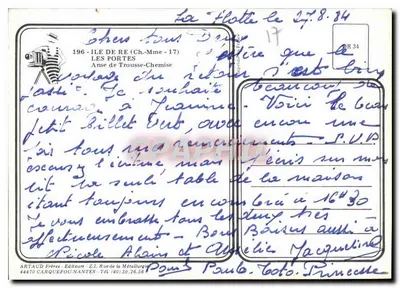 La Flotte le 27.8.84
17
Chers tous Deux
196 - ILE DE RE (Ch.-Mme - 17)
LES PORTES
Anse de Trousse-Chemise
R 34
J'espère que le
voyage du retour s'est bien
passé. Je souhaite beaucoup de
courage à Jeannine. Voici le beau
petit billet vert, avec encore une
fois tous mes remerciements. S.V.P
excusez l'écriture mais j'écris sur mon
lit la seule table de la maison
étant toujours encombrée à 16H30
Je vous embrasse tous les deux très
affectueusement. Bons Baisers aussi à
Nicole Alain et Amélie Jacqueline
Toto. Princesse
ARTAUD Frères - Editeurs - Z.I. Rue de la Métallurgie
44470 CARQUEFOU-NANTES